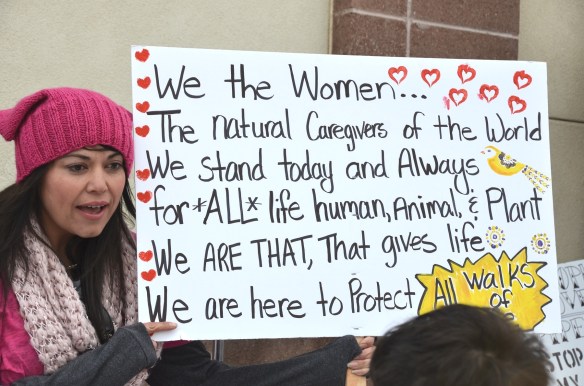 We the Women...
The natural Caregivers of the World
We stand today and Always
for *ALL* life human, Animal, & Plant
We ARE THAT, That gives life
We are here to Protect All Walks
of
STOP